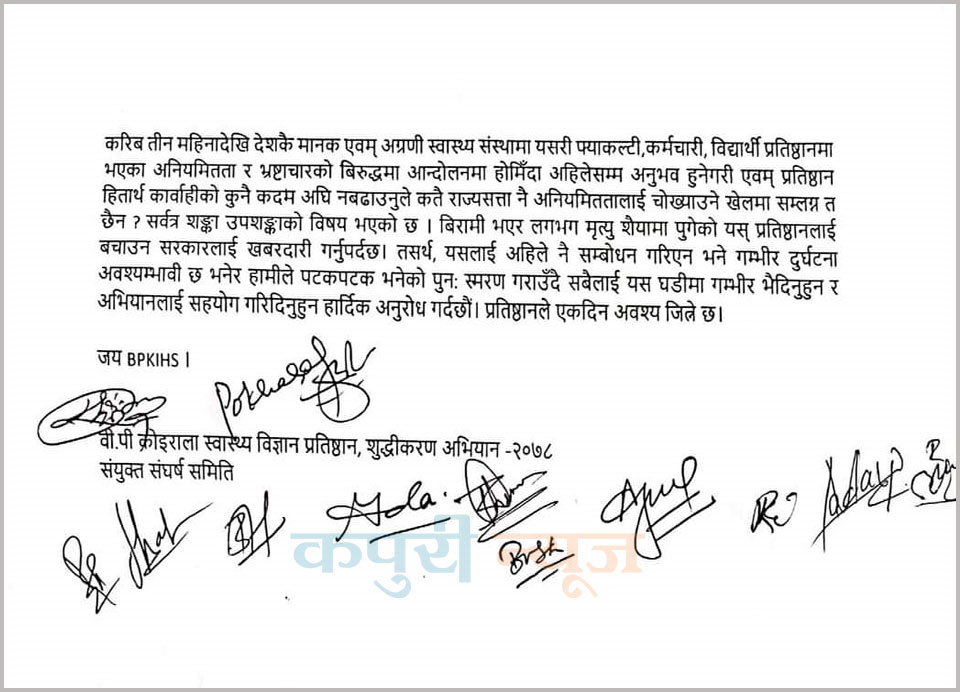 करिब तीन महिनादेखि देशकै मानक एवम् अग्रणी स्वास्थ्य संस्थामा यसरी फ्याकल्टी,कर्मचारी, विद्यार्थी प्रतिष्ठानमा
भएका अनियमितता र भ्रष्टाचारको बिरुद्धमा आन्दोलनमा होमिँदा अहिलेसम्म अनुभव हुनेगरी एवम् प्रतिष्ठान
हितार्थ कार्वाहीको कुनै कदम अघि नबढाउनुले कतै राज्यसत्ता नै अनियमिततालाई चोख्याउने खेलमा सम्लग्न त
छैन ? सर्वत्र शङ्का उपशङ्काको विषय भएको छ । बिरामी भएर लगभग मृत्यु शैयामा पुगेको यस् प्रतिष्ठानलाई
बचाउन सरकारलाई खबरदारी गर्नुपर्दछ। तसर्थ, यसलाई अहिले नै सम्बोधन गरिएन भने गम्भीर दुर्घटना
अवश्यम्भावी छ भनेर हामीले पटकपटक भनेको पुन: स्मरण गराउँदै सबैलाई यस घडीमा गम्भीर भैदिनुहुन र
अभियानलाई सहयोग गरिदिनुहुन हार्दिक अनुरोध गर्दछौं। प्रतिष्ठानले एकदिन अवश्य जित्ने छ।
जय BPKIHS ।
वी.पी क्रोइराला स्वास्थ्य विज्ञान प्रतिष्ठान, शुद्धीकरण अभियान -२०७८
संयुक्त संघर्ष समिति
कपुरी न्यूज